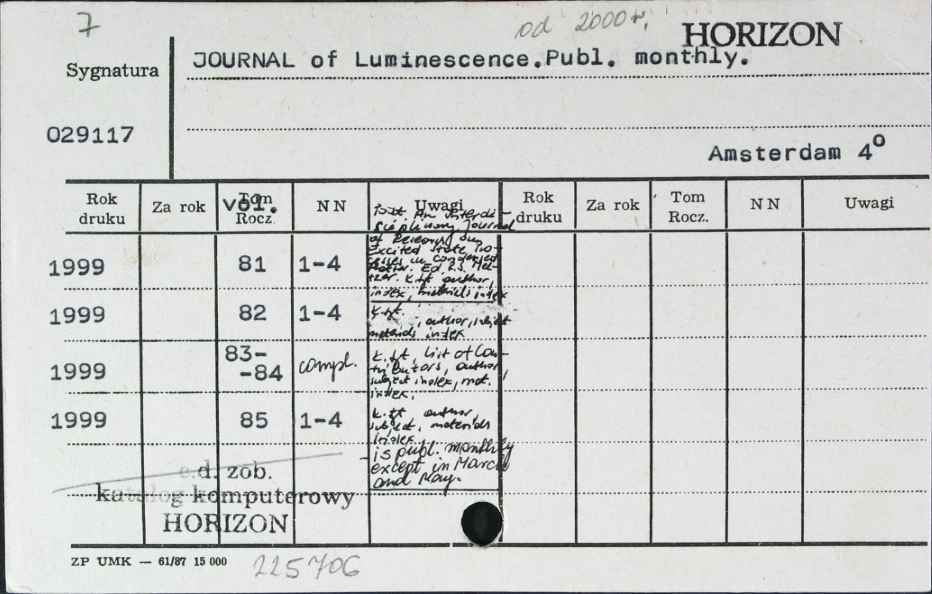 7
od 2000 r.
HORIZON
Sygnatura
JOURNAL of Luminescence.Publ. monthly.
029117
Amsterdam 4º
Rok druku
Za rok
Tom Rocz.
vol.
NN
Uwagi
Rok druku
Za rok
Tom Rocz.
NN
Uwagi
An Interdi-
sciplinary Journal
of Research on
Excited State Pro-
cesses in Condensed
Matter. Ed. R.S. Mel-
tzer. K.tyt. author,
index, materials index
1999 81 1-4
1999 82 1-4
K.tyt.
, author, subject
materials index
1999 83-
-84 compl.
K.tyt, List of Con-
tributors, author,
subject index, mat.
index.
1999 85 1-4
K.tyt, author,
subject, materials
index
- is publ. monthly
except in March
and May.
c.d. zob.
katalog komputerowy
HORIZON
ZP UMK — 61/87 15 000
225706